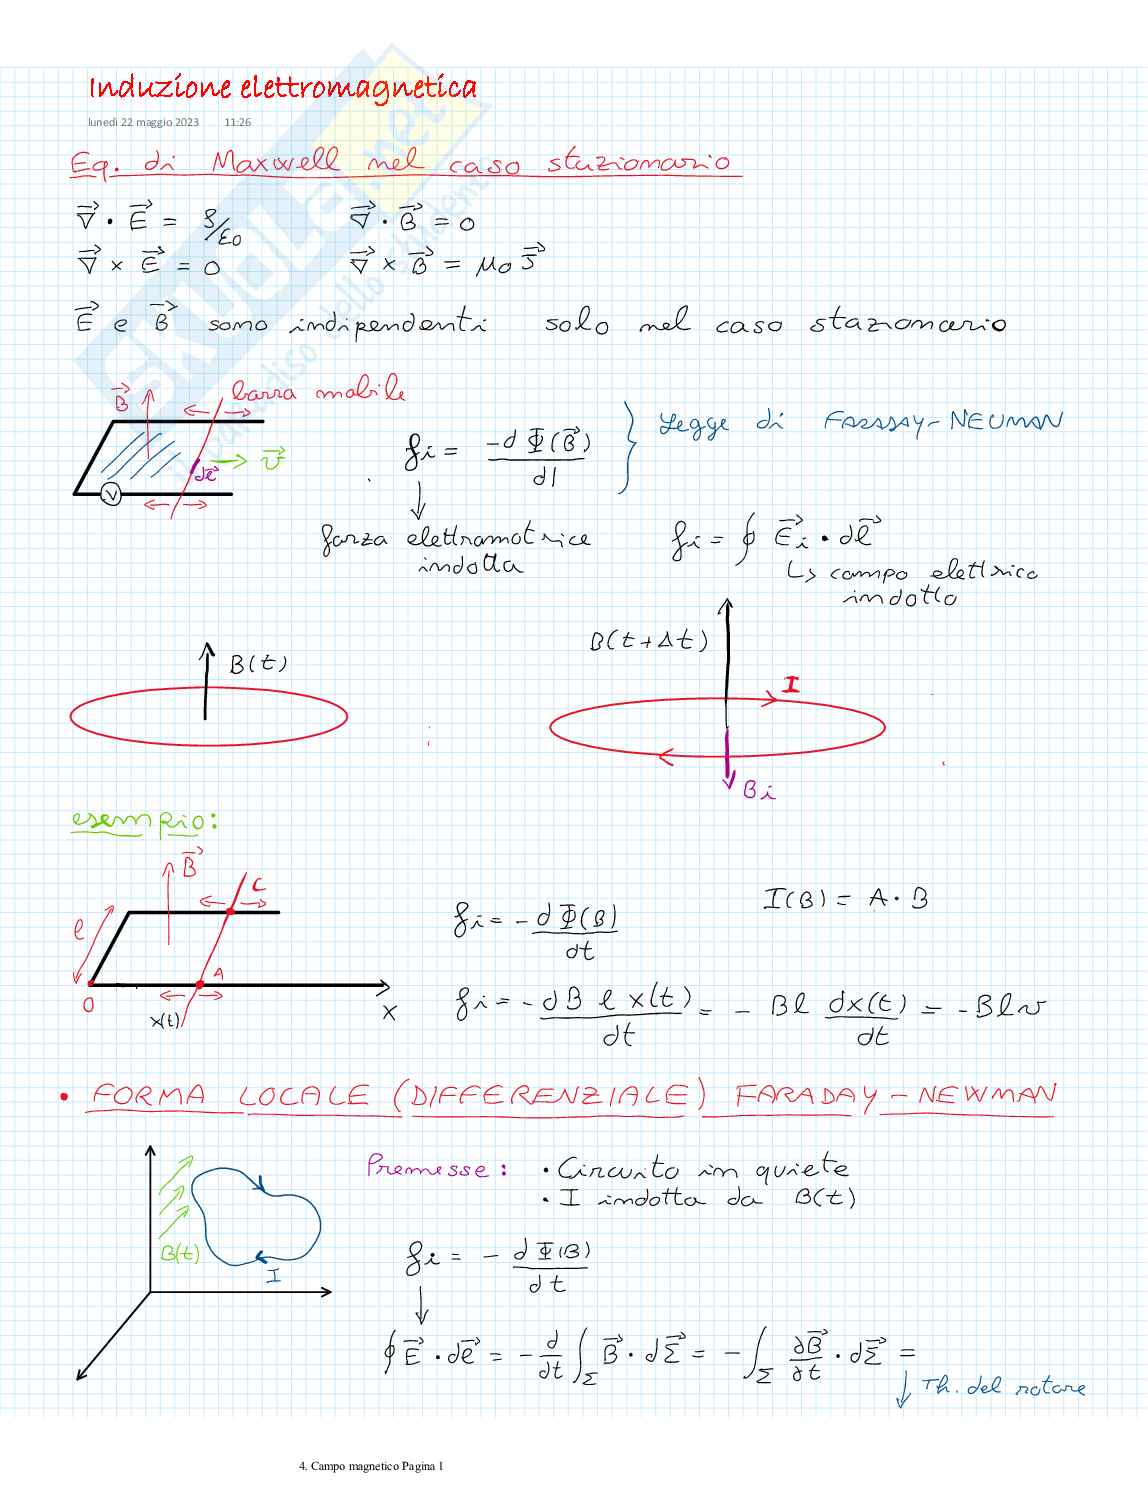 Induzione elettromagnetica
lunedì 22 maggio 2023 11:26
Eq. di Maxwell nel caso stazionario
∇⃗ · E⃗ = ρ/ε0 ∇⃗ · B⃗ = 0
∇⃗ × E⃗ = 0 ∇⃗ × B⃗ = μ0 J⃗
E⃗ e B⃗ sono indipendenti solo nel caso stazionario
B⃗ barra mobile
V dl⃗ v⃗
fi = -d Φ(B⃗) / dl } Legge di FARADAY-NEUMAN
forza elettromotrice indotta
fi = ∮ E⃗i · dl⃗
↳ campo elettrico indotto
B(t)
B(t+Δt)
I
Bi
esempio:
B⃗ C
l
O A
x(t) x
fi = - d Φ(B) / dt I(B) = A · B
fi = - d B l x(t) / dt = - Bl dx(t) / dt = - Blv
• FORMA LOCALE (DIFFERENZIALE) FARADAY-NEWMAN
B(t) I
Premesse: • Circuito in quiete
• I indotta da B(t)
fi = - d Φ(B) / dt
∮ E⃗ · dl⃗ = - d/dt ∫Σ B⃗ · dΣ⃗ = - ∫Σ ∂B⃗/∂t · dΣ⃗ =
↓ Th. del rotore
4. Campo magnetico Pagina 1
SKUOLA.net